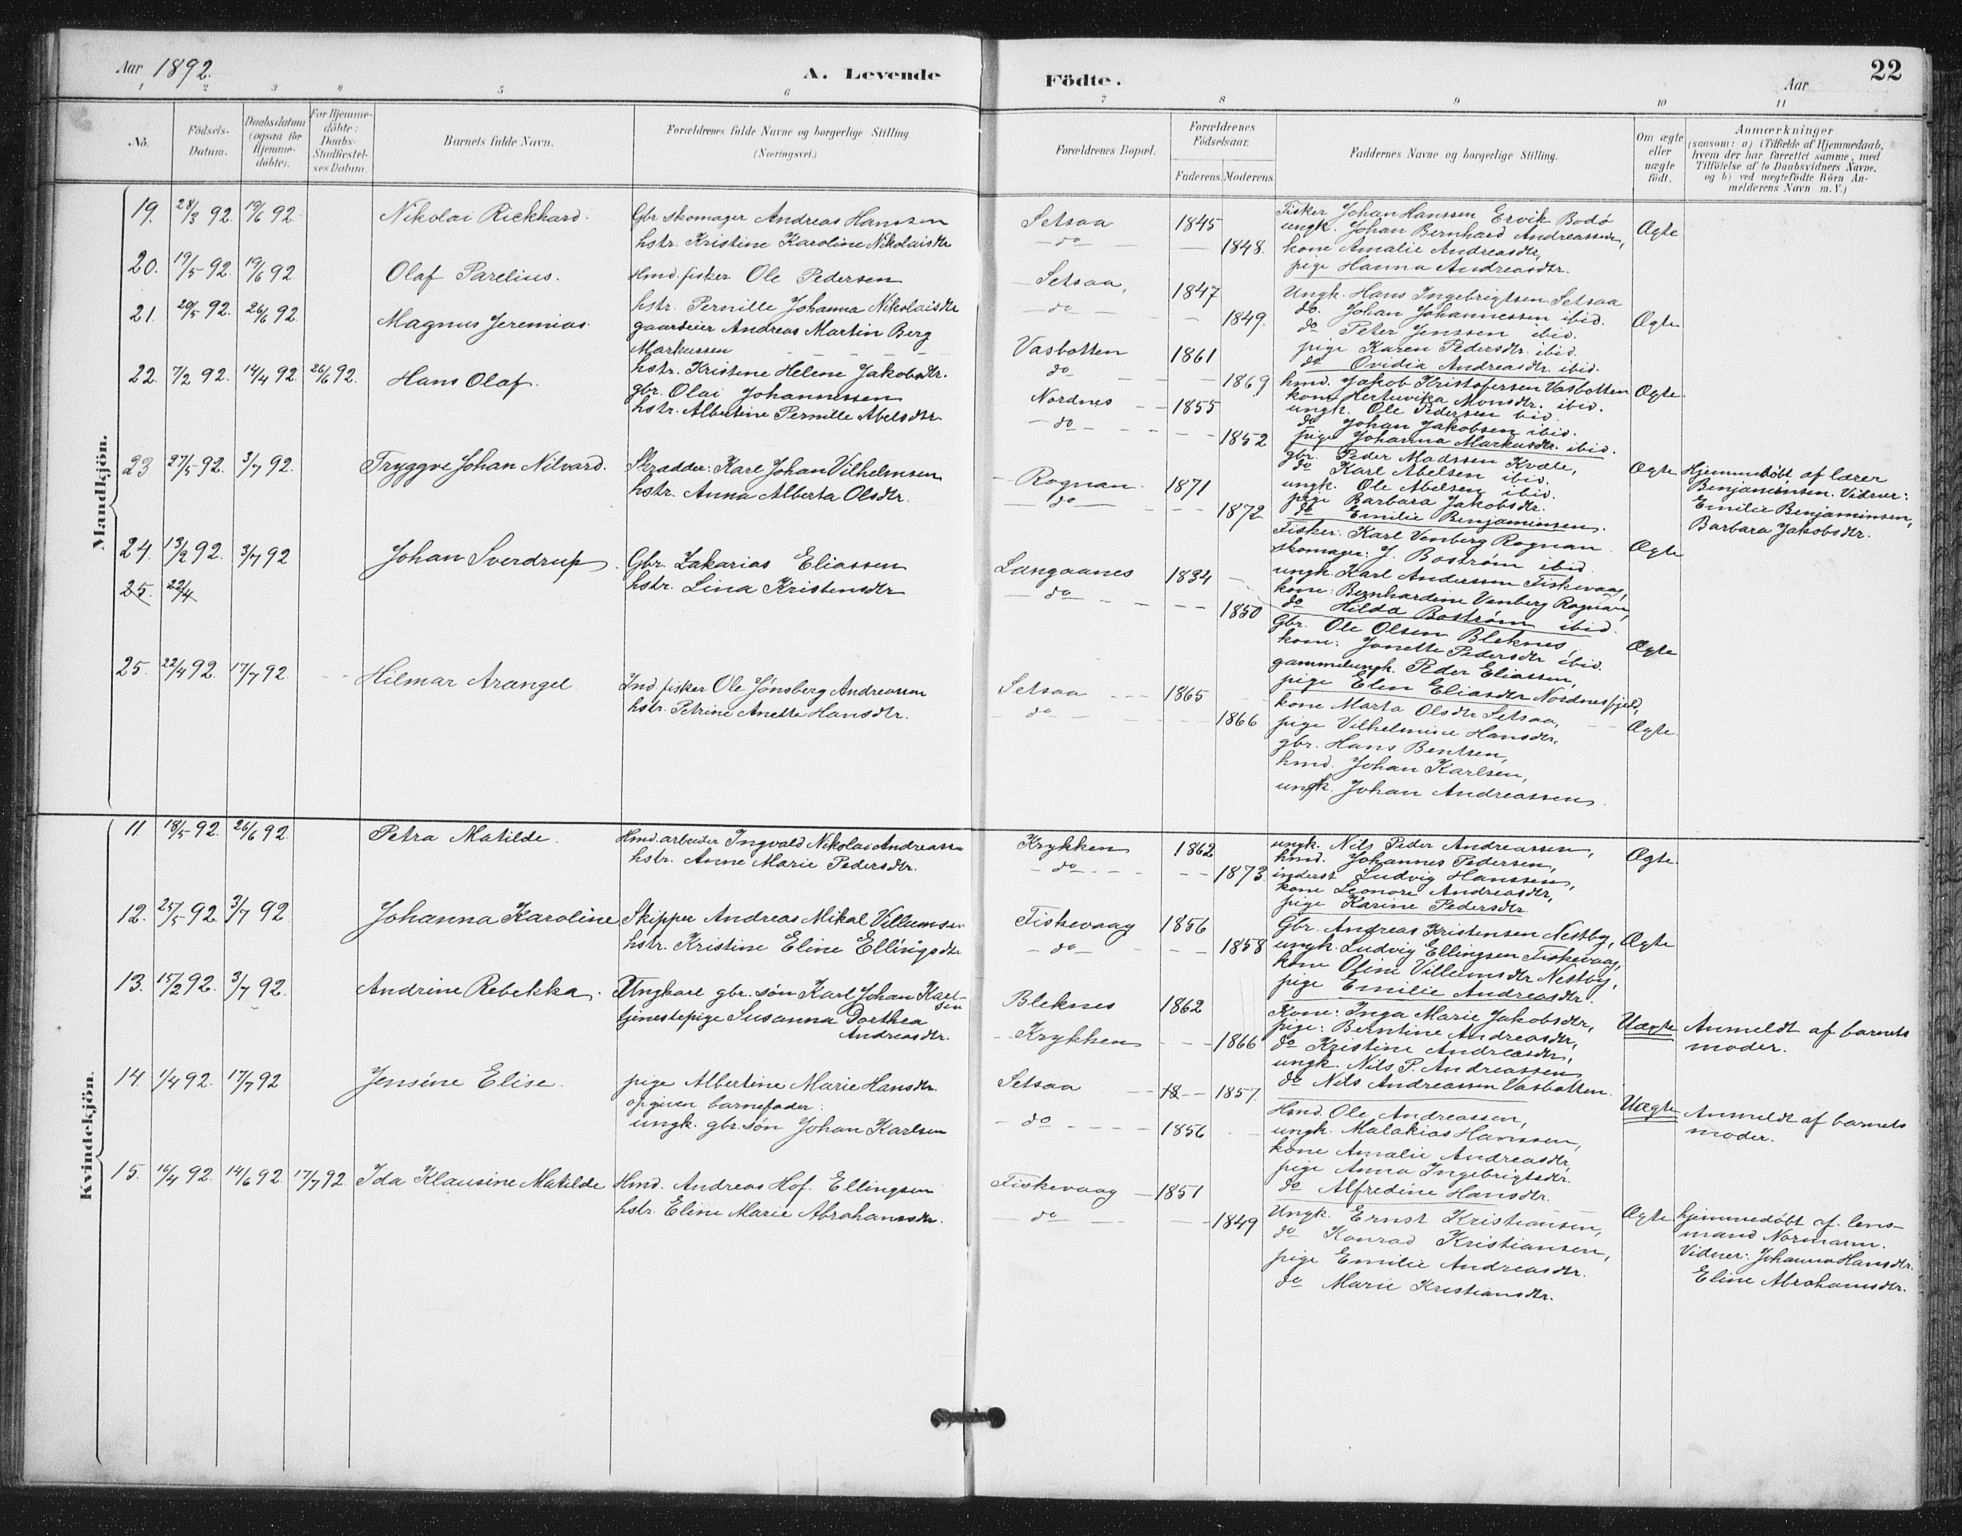 Aar 1892. A. Levende
Födte. Aar 22
1 2 3 4 5 6 7 8 9 10 11
No.
Födsels-Datum.
Daabsdatum (ogsaa for Hjemme-døbte).
For Hjemme-døbte: Daabs-Stadfæstelses Datum
Barnets fulde Navn.
Forældrenes fulde Navne og borgerlige Stilling.
(Næringsvei.)
Forældrenes Bopæl.
Forældrenes Födselsaar.
Faderens. Moderens.
Faddernes Navne og borgerlige Stilling.
Om ægte eller uægte født.
Anmærkninger
(saasom: a) i Tilfælde af Hjemmedaab,
hvem der har forrettet samme, med
Tilföielse af to Daabsvidners Navne,
og b) ved uægtefödte Börn An-
melderens Navn m. V.)
Mandkjön.
19. 28/3 92. 19/6 92 Nikolai Rickhard. Gbr skomager Andreas Hanssen
hstr. Kristine Karoline Nikolaisdtr
Setsaa 1845
do 1848.
Fisker Johan Hanssen Ervik Bodø
ungk. Johan Bernhard Andreassen,
kone Amalie Andreasdtr,
pige Hanna Andreasdtr.
Ægte
20. 19/5 92. 19/6 92 Olaf Parelius. Hmd. fisker Ole Pedersen
hstr. Pernille Johanna Nikolaisdtr
Setsaa, 1847
do 1849.
Ungk. Hans Ingebrigtsen Setsaa
do. Johan Johannessen ibid.
do Peter Jenssen ibid.
pige Karen Pedersdtr. ibid.
do Ovidia Andreasdtr. ibid.
Ægte
21. 20/5 92. 26/6 92. Magnus Jeremias. gaardeier Andreas Martin Berg
Markussen
hstr. Kristine Helene Jakobsdtr.
Vasbotten 1861
do 1869
hmd. Jakob Kristofersen Vasbotten
kone Hertuvika Monsdtr. ibid.
ungk. Ole Pedersen ibid.
do Johan Jakobsen ibid.
pige Johanna Markusdtr. ibid.
Ægte
22. 7/2 92. 14/4 92. 26/6 92. Hans Olaf. gbr. Olai Johannessen
hstr. Albertine Pernille Abelsdtr.
Nordnes 1855
do 1852
gbr. Peder Madssen Kvæle,
do Karl Abelsen ibid.
ungk. Ole Abelsen ibid.
pige Barbara Jakobsdtr.
do Emilie Benjaminsen.
Ægte Hjemmedöbt af lærer
Benjaminsen. Vidner:
Emilie Benjaminsen,
Barbara Jakobsdtr.
23 27/5 92. 3/7 92. Tryggve Johan Nilvard. Skrædder: Karl Johan Vilhelmsen
hstr. Anna Alberta Olsdtr.
Rognan. 1871
do 1872
Fisker: Karl Venberg Rognan
skomager: J. Bostrøm ibid.
ungk. Karl Anderssen Fiskevaag,
kone: Bernhardine Venberg Rognan,
do Hilda Bostrøm ibid.
Ægte
24. 13/2 92. 3/7 92 Johan Sverdrup. Gbr. Zakarias Eliassen
hstr. Lina Kristensdtr
Langaanes 1834
do 1850
Gbr. Ole Olsen Bleknes,
kone: Jonette Pedersdtr ibid.
gammelungk. Peder Eliassen,
pige Elen Eliasdtr Nordnesfjeld,
Ægte
25. 22/4
25. 22/4 92. 17/7 92. Hilmar Arangel Ind. fisker Ole Jønsberg Andreassen
hstr. Petrine Anette Hansdtr.
Setsaa 1865
do 1866
kone Marta Olsdtr Setsaa,
pige Vilhelmine Hansdtr,
gbr. Hans Bentsen,
hmd. Johan Karlsen,
ungk. Johan Andreassen.
Ægte
Kvindekjön.
11 18/5 92. 26/6 92 Petra Matilde. Hmd. arbeider Ingvald Nikolai Andreassen
hstr. Anne Marie Pedersdtr.
Krykken 1862
do 1873.
ungk. Nils Peder Andreassen,
hmd. Johannes Pedersen,
inderst Ludvig Hanssen,
kone Leonore Andreasdtr,
pige Karine Pedersdtr.
Ægte
12. 25/5 92. 3/7 92 Johanna Karoline Skipper Andreas Mikal Villumsen
hstr. Kristine Eline Ellingsdtr
Fiskevaag 1856
do 1858
Gbr. Andreas Kristensen Nestby,
ungk. Ludvig Ellingsen Fiskevaag,
kone Ofine Villumsdtr Nestby,
pige Emilie Andreasdtr.
Ægte
13. 15/2 92. 3/7 92. Andrine Rebekka. Ungkarl gbr. søn Karl Johan Karl-
sen
tjenestepige Susanna Dorthea
Andreasdtr.
Bleknes 1862
Krykken 1866
Kone: Inga Marie Jakobsdtr,
pige: Berntine Andreasdtr,
do Kristine Andreasdtr,
ungk. Nils P. Andreassen
do Nils Andreassen Vasbotten.
Uægte Anmeldt af barnets
moder.
14. 1/4 92. 17/7 92 Jensine Elise. pige Albertine Marie Hansdtr.
opgiven barnefader:
ungk. gbr. søn Johan Karlsen
Setsaa 18 1857
do 1856
Hmd. Ole Andreassen,
ungk. Malakias Hanssen,
kone Amalie Andreasdtr,
pige Anna Ingebrigtsdtr.
do Alfredine Hansdtr.
Uægte Anmeldt af barnets
moder.
15. 16/4 92. 14/6 92 17/7 92 Ida Klausine Matilde Hmd. Andreas Hof. Ellingsen
hstr. Eline Marie Abrahamsdtr.
Fiskevaag 1851
do 1849
Ungk. Ernst Kristiansen,
do Konrad Kristiansen,
pige Emilie Andreasdtr.
do Marie Kristiansdtr.
Ægte. hjemmedøbt af lens-
mand Normann.
Vidner: Johanna Hansdtr.
Eline Abrahamsdtr.